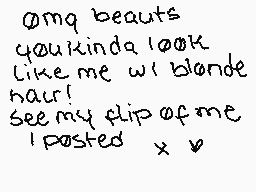 omg beauts
you kinda look
like me w/ blonde
hair!
see my flip of me
I posted
x ♥